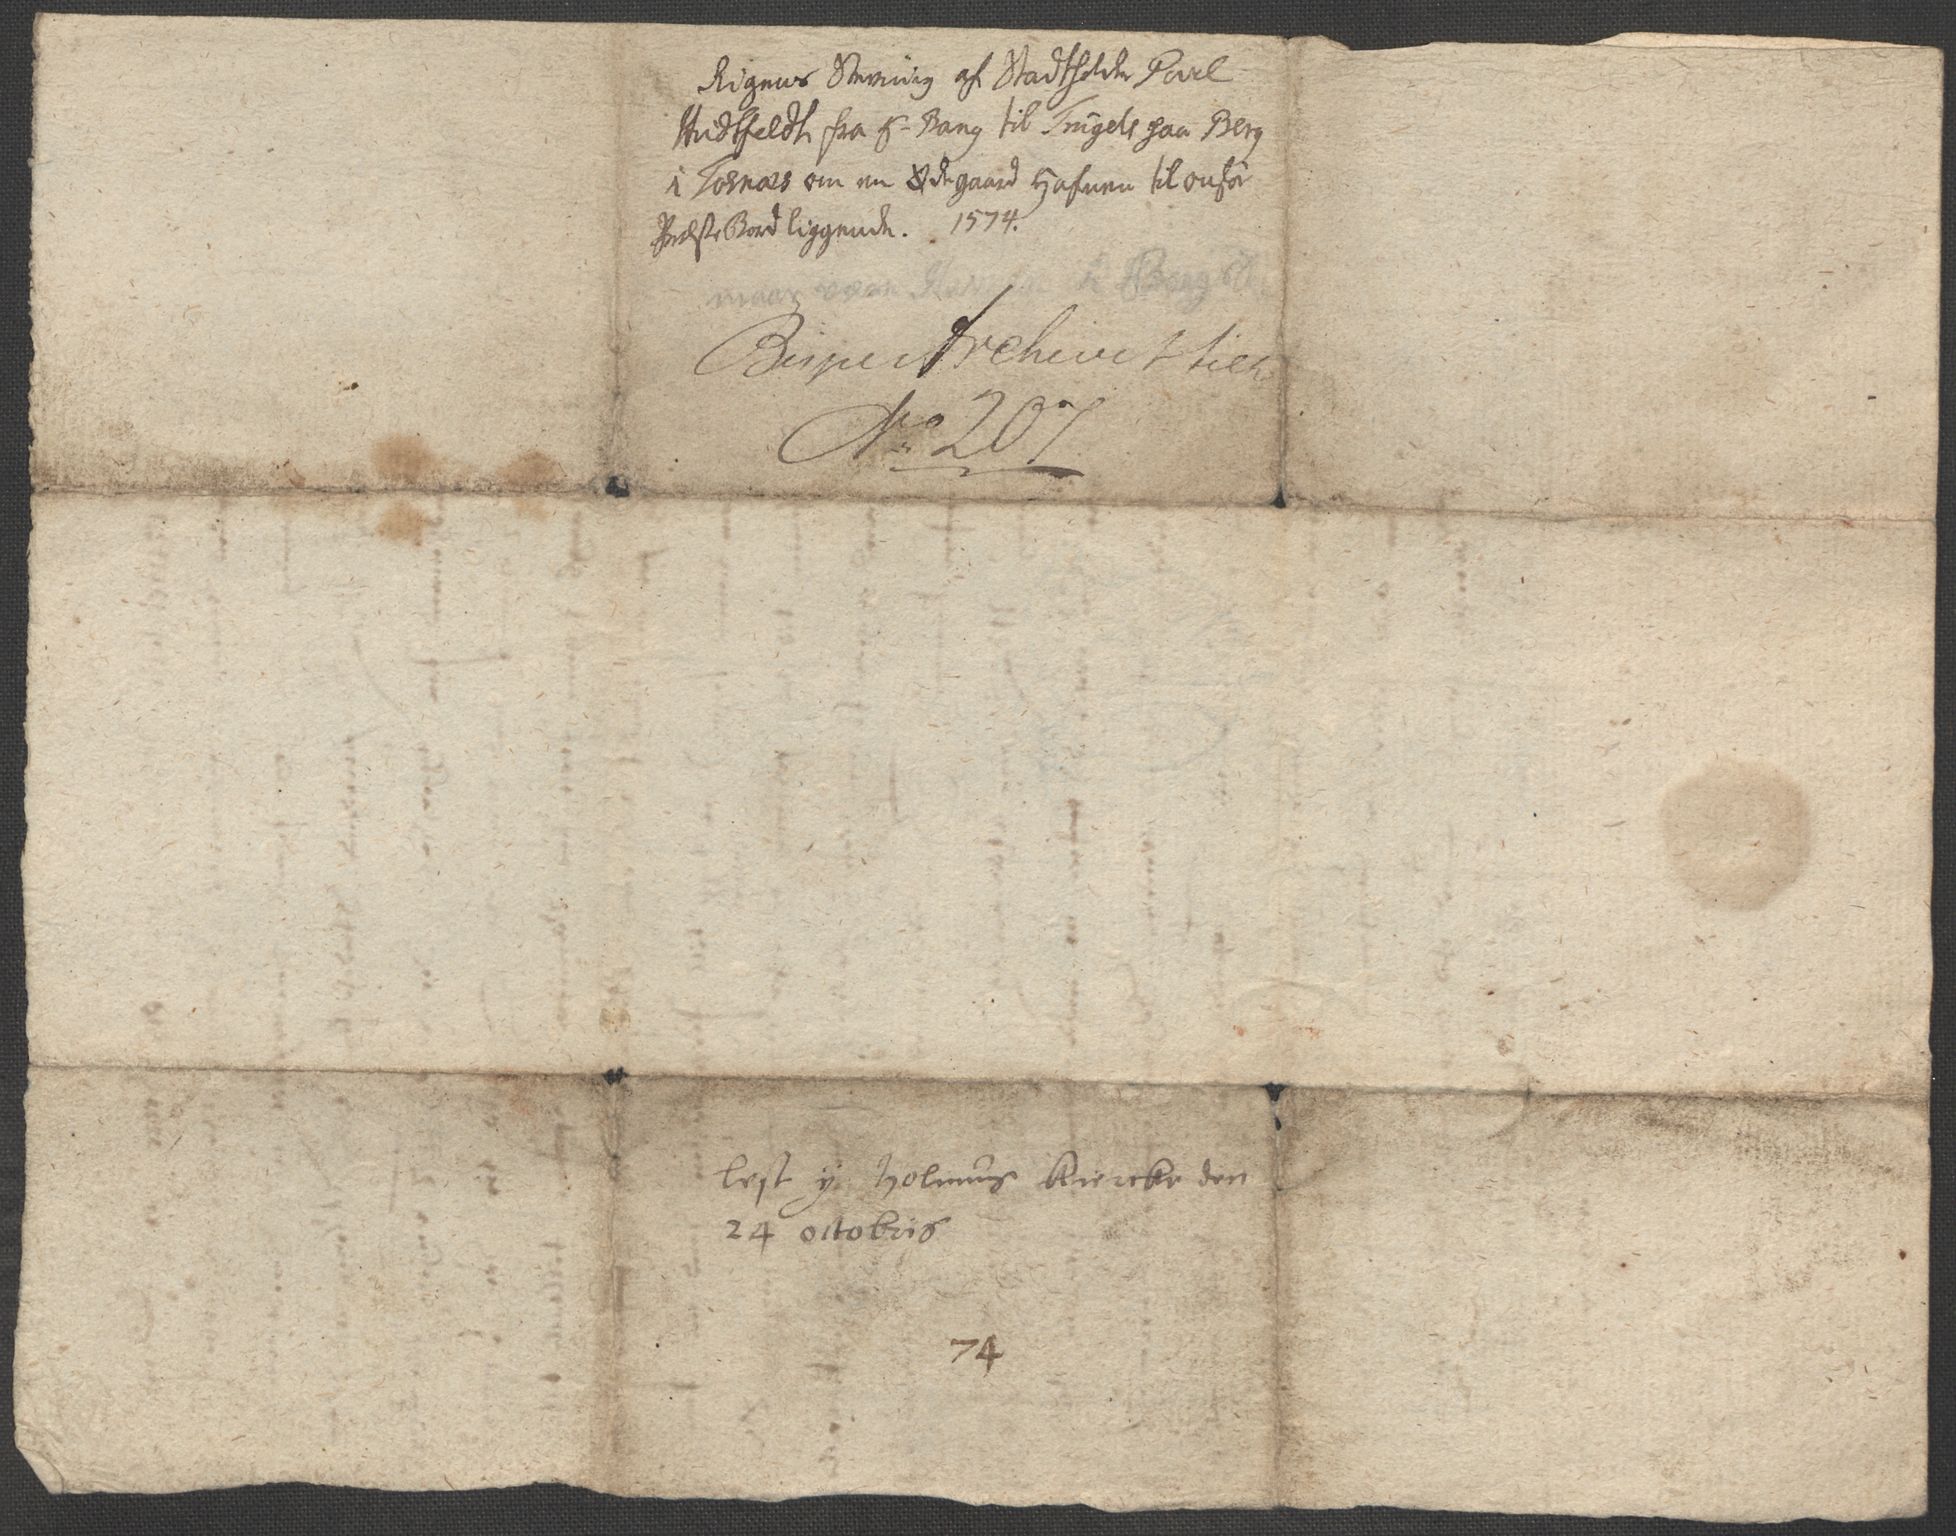 Rigens Stevning af Stadtholder Povel
Huidtfeldt fra H. Bang til Trugels paa Berg
i Tosnæs om en Ødegaard Hafnen til onsøe
Præste Bord liggende. 1574.
Bispe Archivet til
No 207
lest y Holmens kiercke den
24 octobris
74